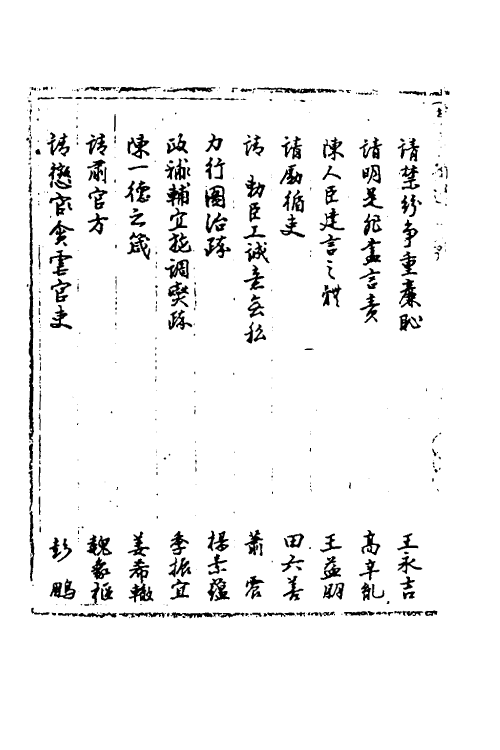 請禁紛爭重廉恥 王永吉
請明是非盡言責 高辛胤
陳人臣建言之體 王益朋
請勵循吏 田六善
請勅臣工誠意無私 蕭震
力行圖治疏 楊素蘊
政繇輔宜施調燮疏 季振宜
陳一德之箴 姜希轍
請肅官方 魏象樞
請懲貪官吏 彭鵬